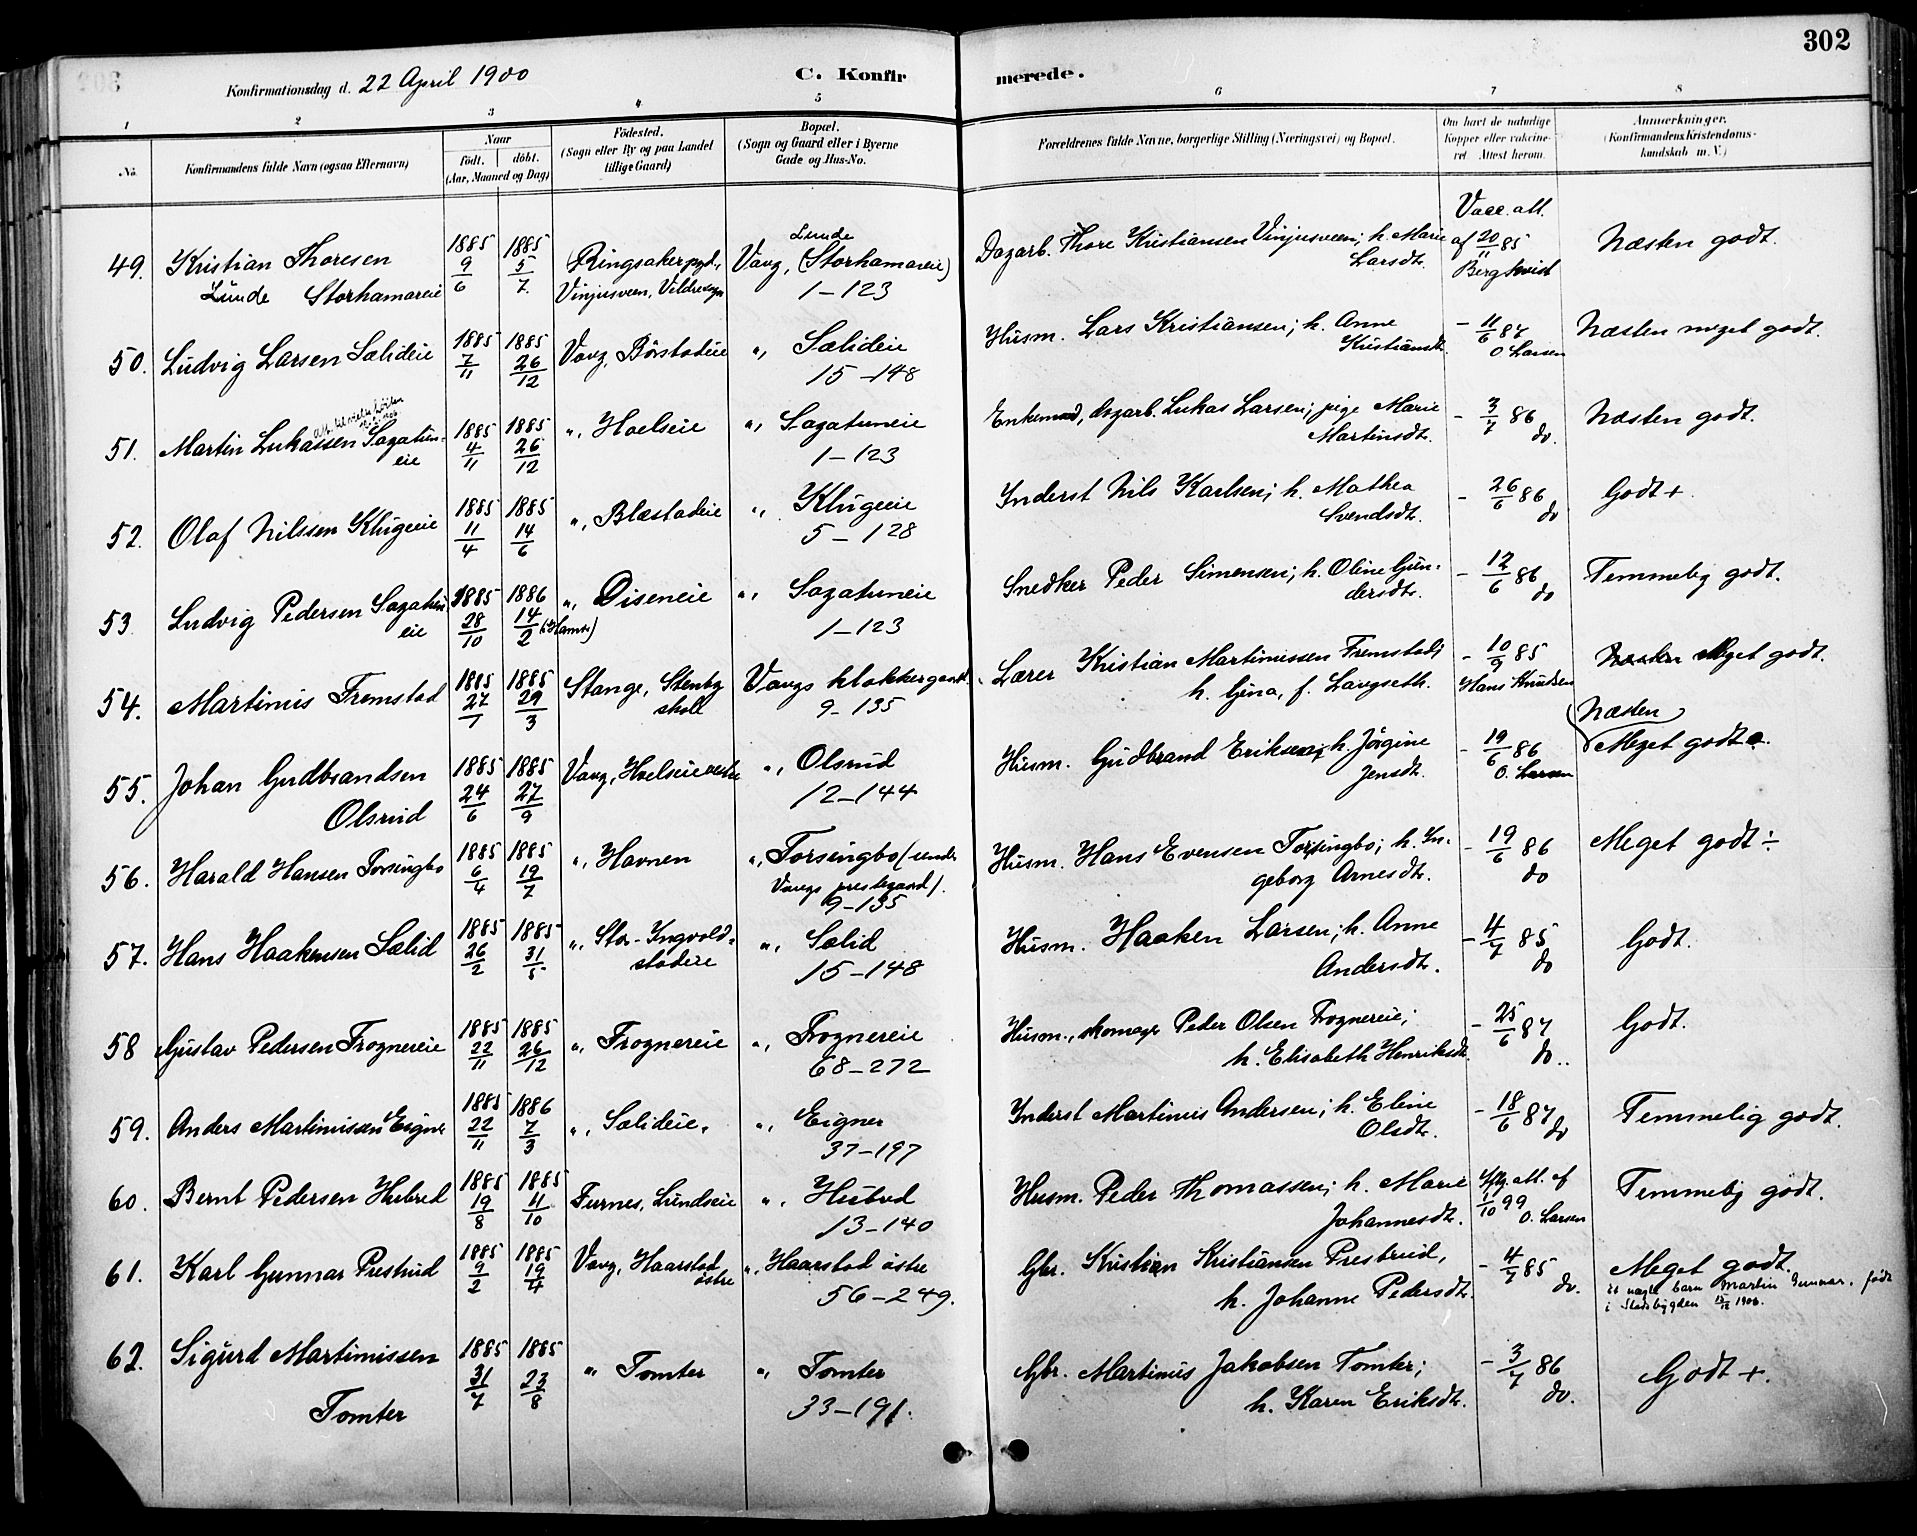 302
Konfirmationsdag d. 22 April 1900
C. Konfirmerede.
1 2 3 4 5 6 7 8
No.
Konfirmandens fulde Navn (ogsaa Efternavn)
Naar født. døbt. (Aar, Maaned og Dag)
Födested. (Sogn eller By og paa Landet tillige Gaard)
Bopæl. (Sogn og Gaard eller i Byerne Gade og Hus-No.
Forældrenes fulde Navne, borgerlige Stilling (Næringsvei) og Bopæl.
Om havt de naturlige Kopper eller vakcineret Attest herom.
Anmærkninger. (Konfirmandens Kristendomskundskab m. V.)
49. Kristian Thoresen Lunde Storhamareie 1885 9/6 1885 5/7 Ringsaker pgd., Vinjusveen, Veldresogn Vang, Lunde (Storhamareie) 1-123 Dagarb. Thore Kristiansen Vinjusveen; h. Marie Larsdt. Vacc. att. af 20/11 85 Bergkvist Næsten godt.
50. Ludvig Larsen Sælideie 1885 7/11 1885 26/12 Vang, Börstadeie „ Sælideie 15-148 Husm. Lars Kristiansen; h. Anne Kristiansdt. - 11/6 87 O Larsen Næsten meget godt.
51. Martin Lukassen Sagatuneie 1885 4/11 1885 26/12 „ Hoelseie „ Sagatuneie 1-123 Enkemand, dagarb. Lukas Larsen; pige Marie Martinsdt. - 3/7 86 do. Næsten godt.
52. Olaf Nilssen Klugeeie 1885 11/4 1885 14/6 „ Blæstadeie „ Klugeeie 5-128 Inderst Nils Karlsen; h. Mathea Svendsdt. - 26/6 86 do Godt +
53. Ludvig Pedersen Sagatuneie 1885 28/10 1886 14/2 (Hamar) „ Diseneie „ Sagatuneie 1-123 Snedker Peder Simensen; h. Oline Gundersdt. - 12/6 86 do Temmelig godt.
54. Martinus Fremstad 1885 27/1 1885 29/3 Stange, Stenby skole Vangs klokkergaard 9-135 Lærer Kristian Martinussen Fremstad; h. Gina, f. Langseth. - 10/9 85 Hans Knudsen Næsten Meget godt.
55. Johan Gudbrandsen Olsrud 1885 24/6 1885 27/9 Vang, Hoelseie vestre „ Olsrud 12-144 Husm. Gudbrand Eriksen; h. Jörgine Jensdt. - 19/6 86 O. Larsen (Næsten) Meget godt.
56. Harald Hansen Torsingbo 1885 6/4 1885 19/7 „ Havnen „ Torsingbo (under Vangs prestegaard). 9-135 Husm. Hans Evensen Torsingbo; h. Ingeborg Arnesdt. - 19/6 86 do Meget godt ÷
57. Hans Haakensen Sælid 1885 26/2 1885 31/5 „ Stor-Ingvoldstadeie „ Sælid 15-148 Husm. Haaken Larsen; h. Anne Andersdt. - 4/7 85 do Godt.
58 Gustav Pedersen Frognereie 1885 22/11 1885 26/12 „ Frognereie „ Frognereie 68-272 Husm., skomager Peder Olsen Frognereie; h. Elisabeth Henriksdt. - 25/6 87 do.. Godt.
59. Anders Martinussen Eigner 1885 22/11 1886 7/3 „ Sælideie. „ Eigner 37-197 Inderst Martinus Andersen; h. Eline Olsdt. - 18/6 87 do Temmelig godt.
60. Bernt Pedersen Hubred 1885 19/8 1885 11/10 Furnes, Lundseie „ Hubred 13-140 Husm. Peder Thomassen; h. Marie Johannesdt. att. af 1/10 99 O. Larsen Temmelig godt.
61. Karl Gunnar Prestrud 1885 9/2 1885 19/4 Vang, Haarstad östre „ Haarstad östre 56-249. Gbr. Kristian Kristiansen Prestrud, h. Johanne Pedersdt. - 4/7 85 do. Meget godt.
barn Martin Gunnar, födt i Stadsbygden 1906.
62. Sigurd Martinussen Tomter 1885 31/7 1885 23/8 „ Tomter „ Tomter 33-191. Gbr. Martinus Jakobsen Tomter; h. Karen Eriksdt. - 3/7 86 do. Godt +.